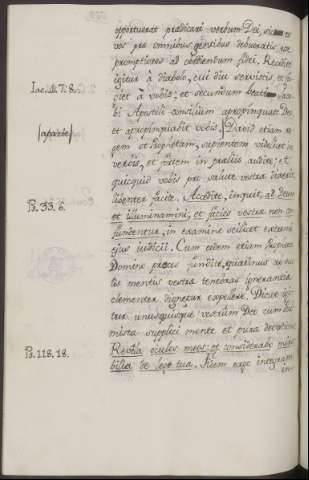 oportuerat prædicari verbum Dei, sicut et
vos pro omnibus gentibus debueratis
promptiores ad obediendum fidei. Recedite
Jac. 4. 7. 8.
igitur a diabolo, cui diu servistis, et
et a vobis; et secundum beati Jaco-
bi Apostoli consilium apropinquate Deo
et apropinquabit vobis. David etiam re-
gem et Prophetam, sapientem videlicet in
verbis, et fortem in præliis audite; et
quicquid vobis pro salute vestra dixerit
libenter facite. Accedite, inquit, ad Deum
Ps. 33. 6.
et illuminamini, et facies vestræ non con-
fundentur, in examine scilicet extremi
ejus iudicii. Cum eodem etiam Propheta
Domino preces fundite, quatinus
mentis vestræ tenebras ignorantiæ
clementer dignetur expellere. Dicat igi-
tur unusquisque vestrum Deo cum
supplici mente et pura devotione
Ps. 118. 18.
Revela oculos meos: et considerabo mira-
bilia de lege tua. integram